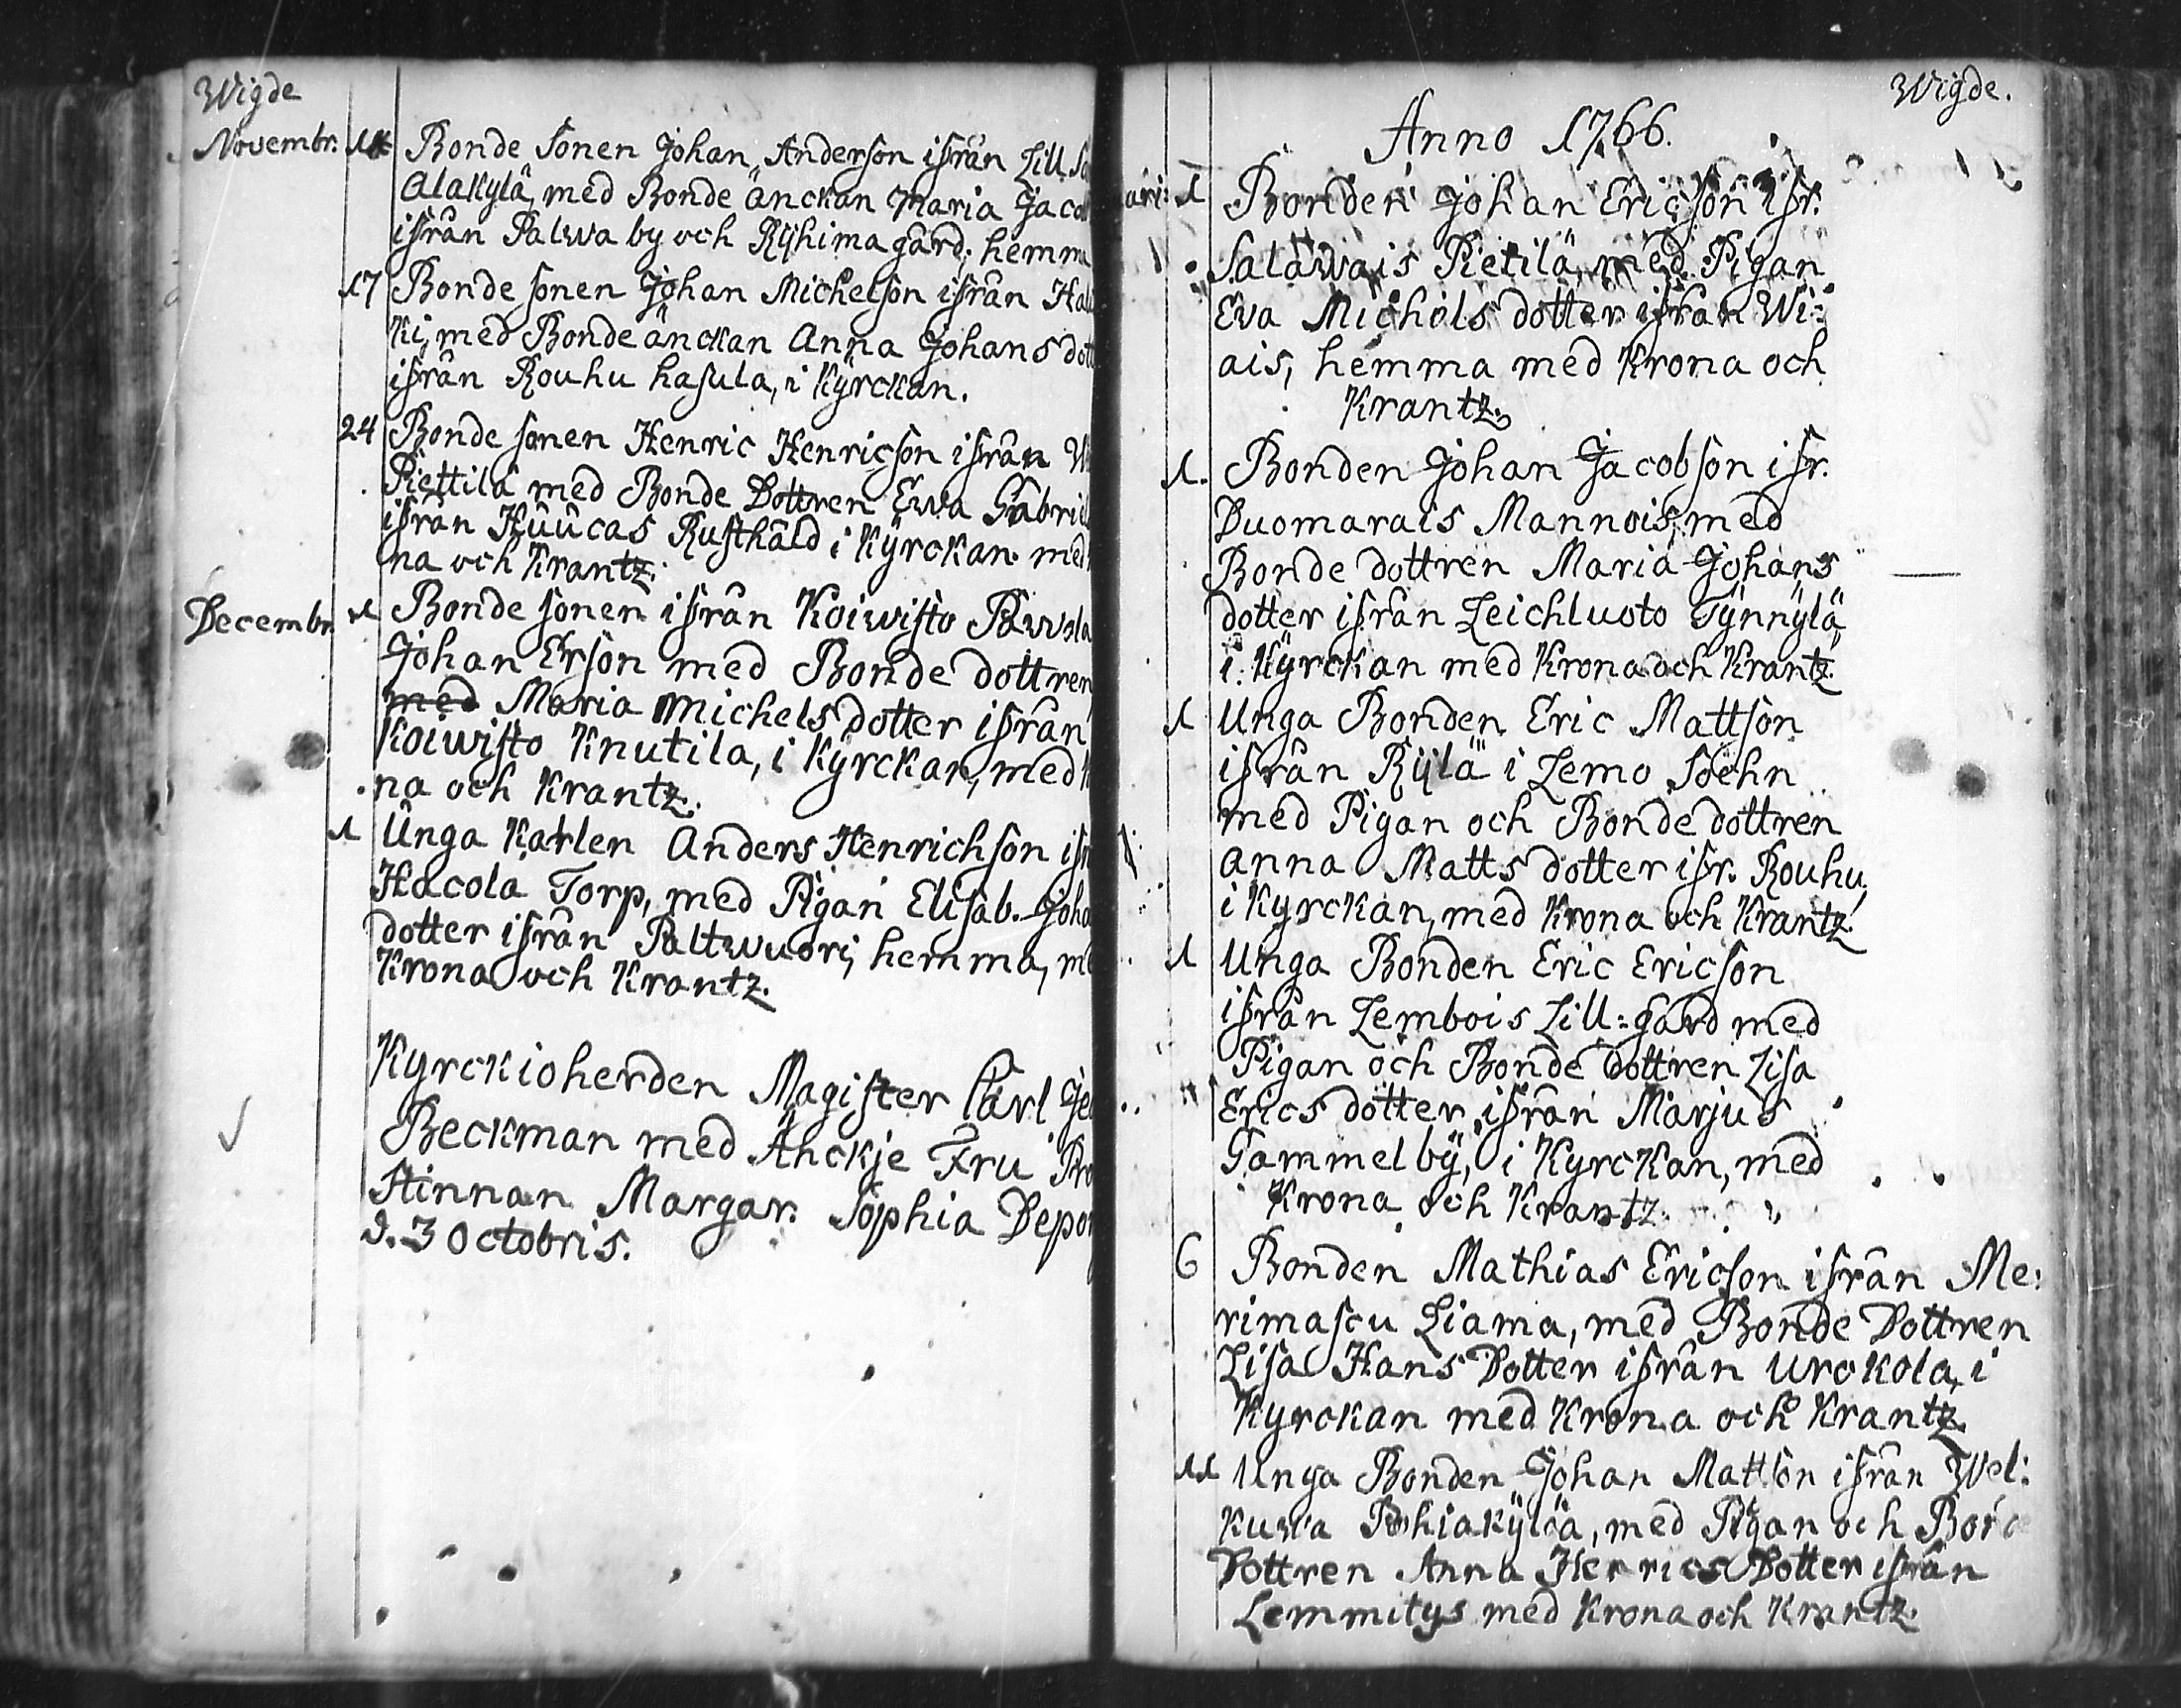 Wigde
Novembr. 14 Bonde Sonen Johan Anderson ifrån Lill
Alakylä, med Bonde änckan Maria Jacob
ifrån Palwa by och Ryhimagård, hemma
17 Bonde sonen Johan Michelson ifrån
ki, med Bonde änckan Anna Johans dott
ifrån Rouhu hasula, i Kyrckan.
24 Bonde sonen Henric Henricson ifrån
Piettilä med Bonde Dottren Ewa Gabriel
ifrån Kuucas Rusthåld i Kyrckan med
na och Krantz.
Decembr. 1 Bonde sonen ifrån Koiwisto
Johan Erson med Bonde dottren
med Maria Michels dotter ifrån
Koiwisto Knutila, i Kyrckan, med
na och Krantz.
1 Unga Karlen Anders Henrichson ifr
Hacola Torp, med Pigan Elisab. Joha
dotter ifrån Paltwuori, hemma, me
Krona och Krantz.
Kyrckioherden Magister Carl
Beckman med Änckje Fru Pro
stinnan Margar. Sophia Depon
d. 3 Octobris.
Wigde.
Anno 1766.
ari: 1 Bonden Johan Ericson ifr.
Salawais Pietilä, med Pigan
Eva Michols dotter ifrån Wi:
ais, hemma med Krona och
Krantz.
1. Bonden Johan Jacobson ifr.
Duomarais Mannois, med
Bonde dottren Maria Johans
dotter ifrån Leichluoto Tynnylä
i Kyrckan med Krona och Krantz.
1 Unga Bonden Eric Mattson
ifrån Rylä i Lemo Sochn
med Pigan och Bonde dottren
Anna Matts dotter ifr. Rouhu,
i Kyrckan, med Krona och Krantz.
1 Unga Bonden Eric Ericson
ifrån Lembois Lill:gård med
Pigan och Bonde dottren Lisa
Erics dotter ifrån Marjus
Gammelby, i Kyrckan, med
Krona och Krantz.
6 Bonden Mathias Ericson ifrån Me:
rimascu Liama, med Bonde Dottren
Lisa Hans Dotter ifrån Urckola, i
Kyrckan med Krona och Krantz.
11 Unga Bonden Johan Mattson ifrån Wel:
kuwa med Pigan och
Dottren Anna Henrics Dotter ifrån
Lemmitys med Krona och Krantz.